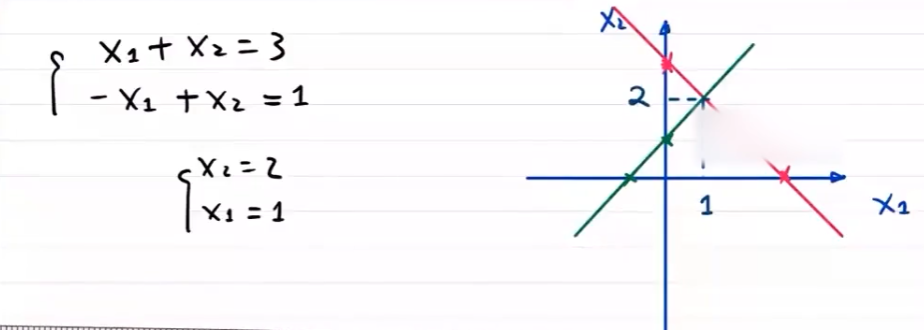 x₁ + x₂ = 3
- x₁ + x₂ = 1
x₂ = 2
x₁ = 1
x₂
2
1
x₁